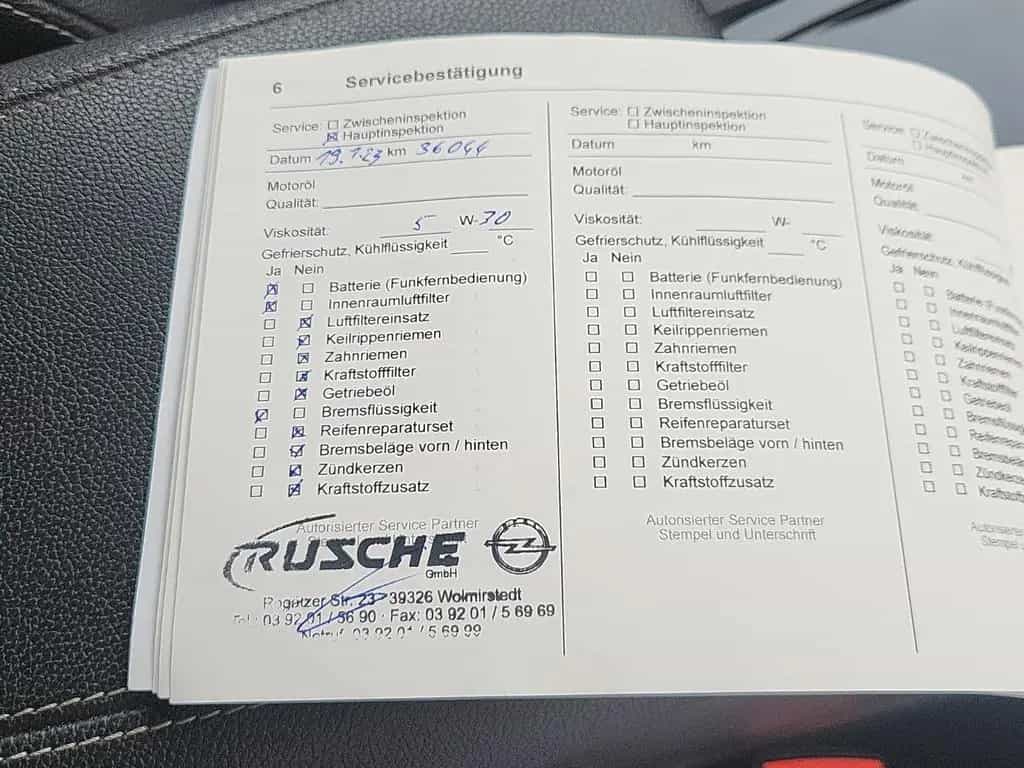 6 Servicebestätigung
Service: ☐ Zwischeninspektion
☒ Hauptinspektion
Datum 19.1.23 km 36044
Motoröl
Qualität:
Viskosität: 5 W-30
Gefrierschutz, Kühlflüssigkeit °C
Ja Nein
☒ ☐ Batterie (Funkfernbedienung)
☒ ☐ Innenraumluftfilter
☐ ☒ Luftfiltereinsatz
☐ ☒ Keilrippenriemen
☐ ☒ Zahnriemen
☐ ☒ Kraftstofffilter
☐ ☒ Getriebeöl
☒ ☐ Bremsflüssigkeit
☐ ☒ Reifenreparaturset
☐ ☒ Bremsbeläge vorn / hinten
☐ ☒ Zündkerzen
☐ ☒ Kraftstoffzusatz
Autorisierter Service Partner
RUSCHE
GmbH
Rogätzer Str. 23 · 39326 Wolmirstedt
Tel.: 03 92 01 / 56 90 · Fax: 03 92 01 / 5 69 69
Notruf 03 92 01 / 5 69 99
Service: ☐ Zwischeninspektion
☐ Hauptinspektion
Datum km
Motoröl
Qualität:
Viskosität: W-
Gefrierschutz, Kühlflüssigkeit °C
Ja Nein
☐ ☐ Batterie (Funkfernbedienung)
☐ ☐ Innenraumluftfilter
☐ ☐ Luftfiltereinsatz
☐ ☐ Keilrippenriemen
☐ ☐ Zahnriemen
☐ ☐ Kraftstofffilter
☐ ☐ Getriebeöl
☐ ☐ Bremsflüssigkeit
☐ ☐ Reifenreparaturset
☐ ☐ Bremsbeläge vorn / hinten
☐ ☐ Zündkerzen
☐ ☐ Kraftstoffzusatz
Autorisierter Service Partner
Stempel und Unterschrift
Service: ☐ Zwischeninspektion
☐ Hauptinspektion
Datum km
Motoröl
Qualität:
Viskosität:
Gefrierschutz, Kühlflüssigkeit
Ja Nein
☐ ☐ Batterie (Funkf
☐ ☐ Innenraumluft
☐ ☐ Luftfiltereinsatz
☐ ☐ Keilrippenriemen
☐ ☐ Zahnriemen
☐ ☐ Kraftstofffilter
☐ ☐ Getriebeöl
☐ ☐ Bremsflüssig
☐ ☐ Reifenrepar
☐ ☐ Bremsbeläg
☐ ☐ Zündkerzen
☐ ☐ Kraftstoff
Autorisierter
Stempel